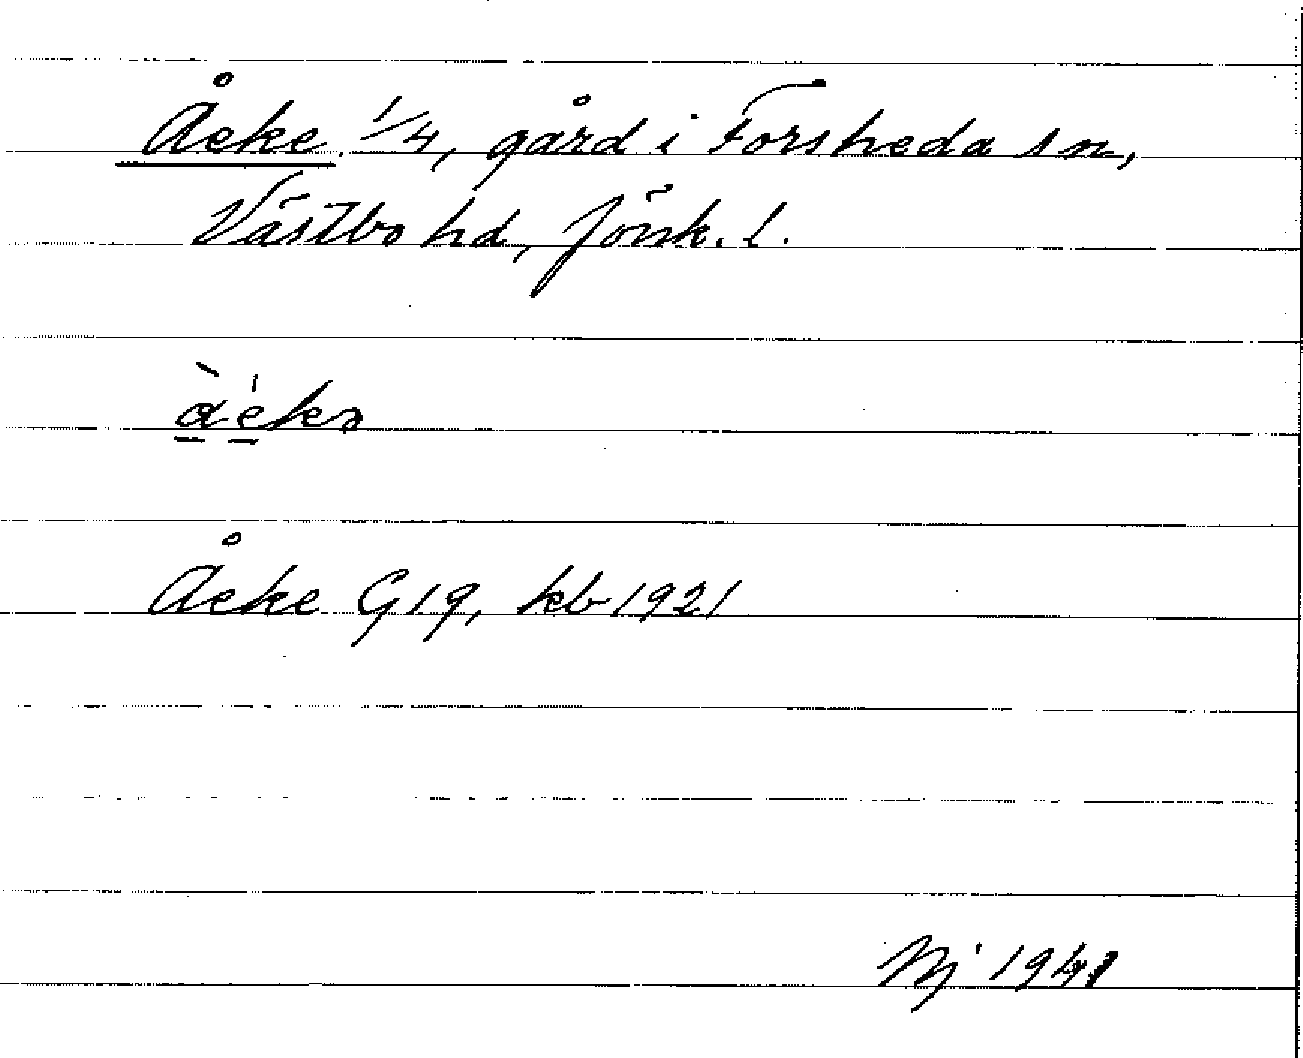 Åeke 1/4, gård i Forsheda sn,
Västbo hd, Jönk. l.
Åeke G19, kb 1921
Nj 1941